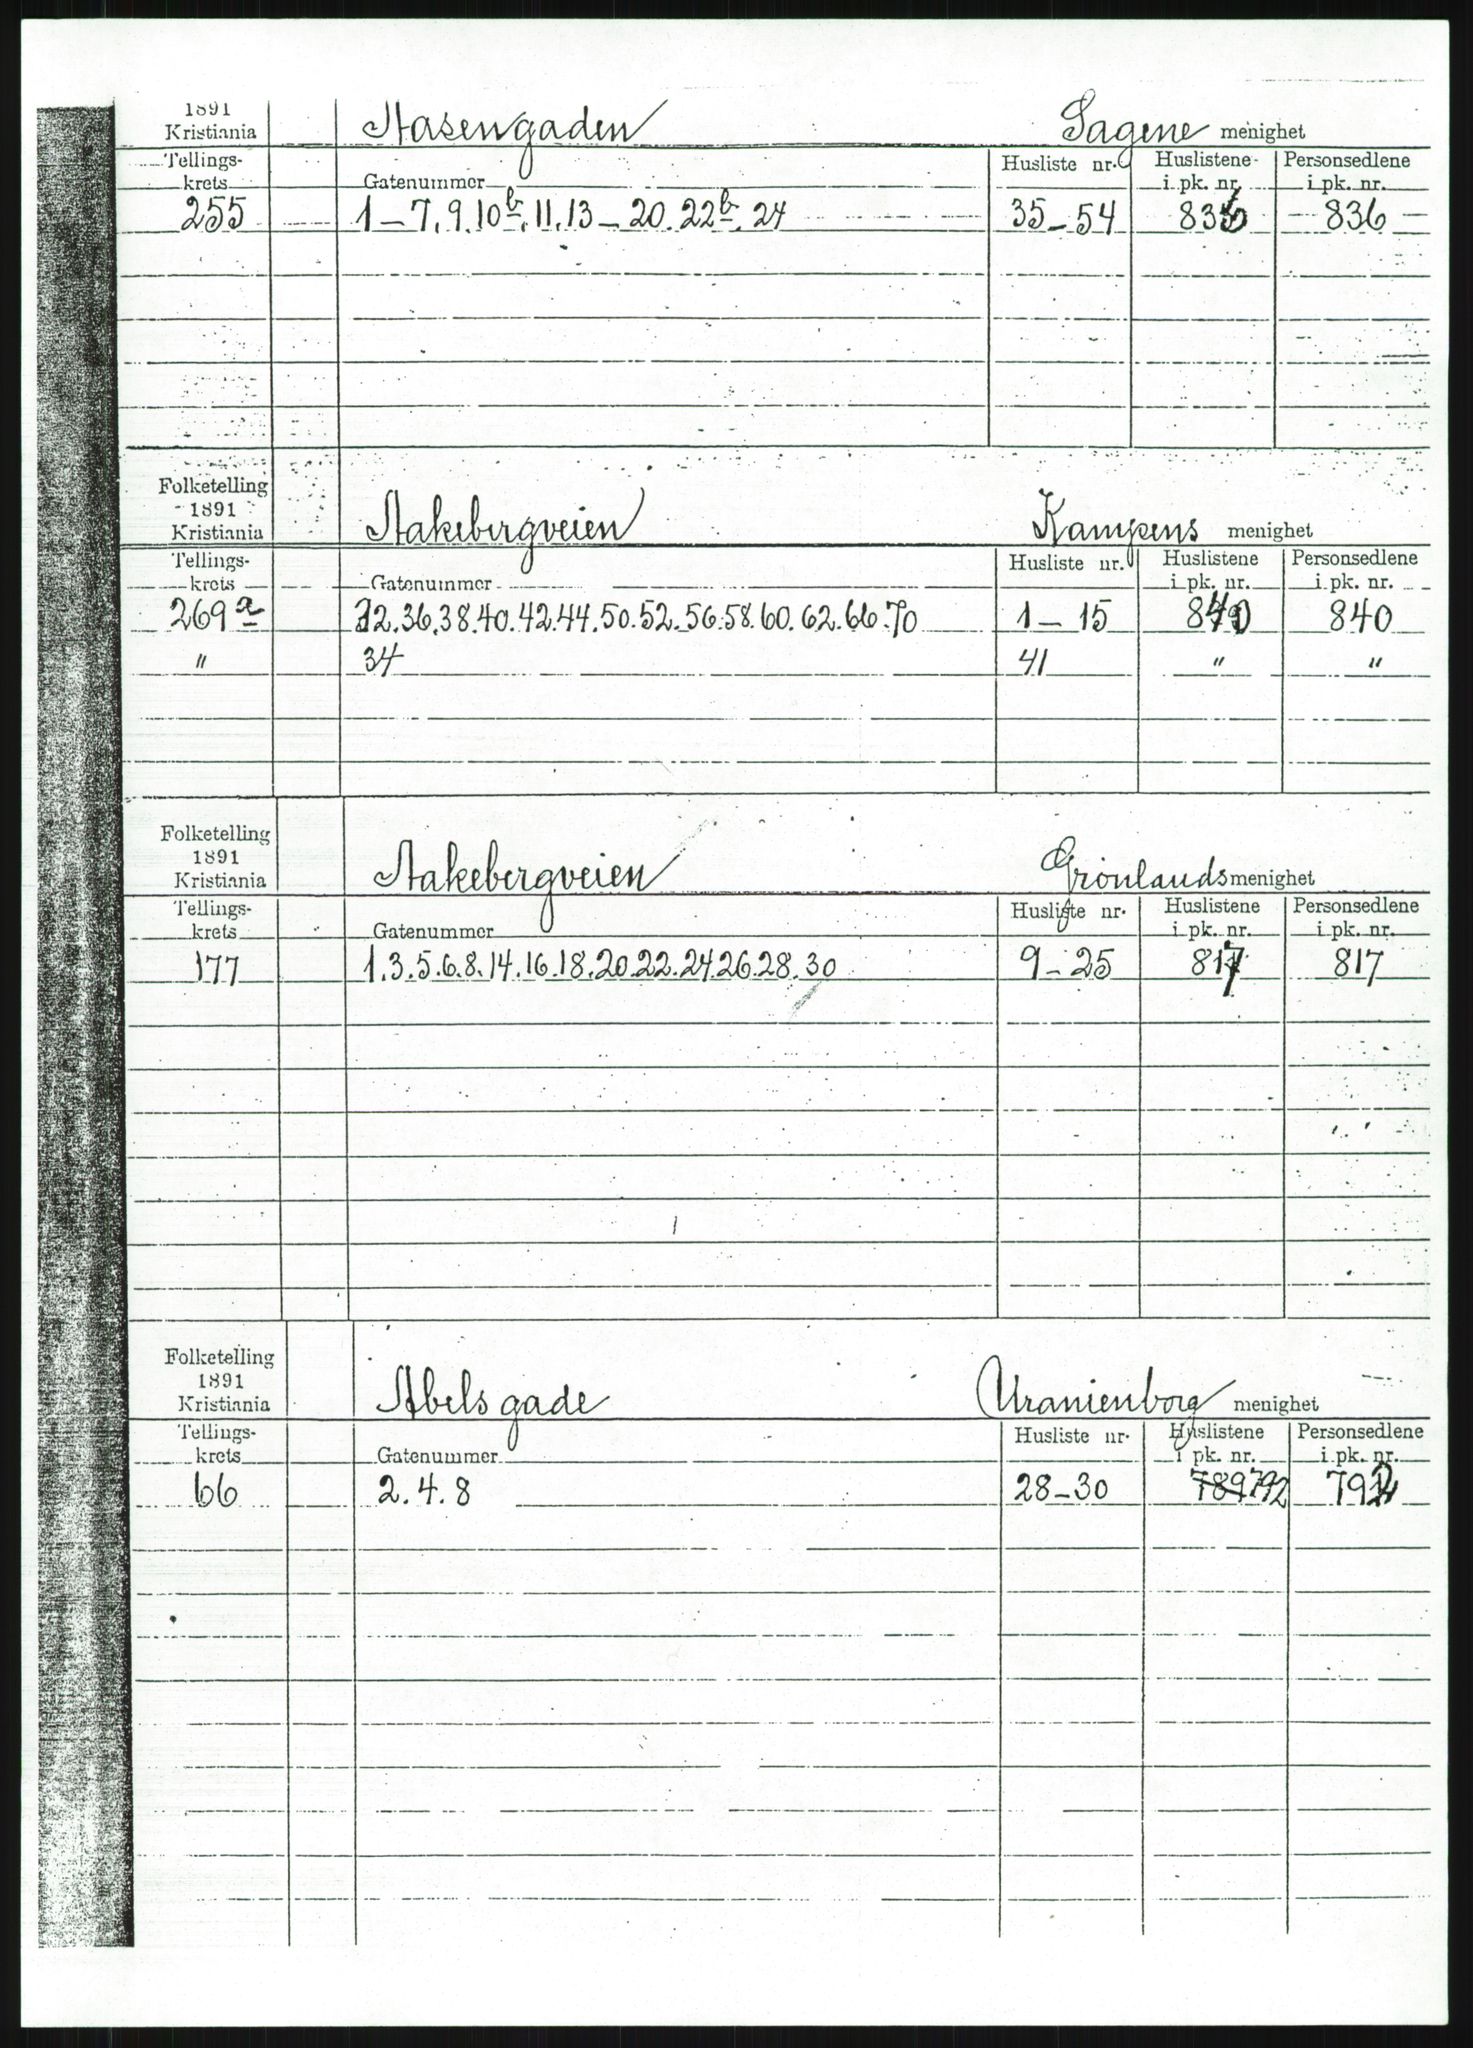 1891
Kristiania Aasengaden Sagene menighet
Tellings- Husliste nr. Huslistene Personsedlene
krets Gatenummer i pk. nr. i pk. nr.
255 1-7.9.10b.11.13-20.22b.24 35-54 836 836
Folketelling
1891
Kristiania Aakebergveien Kampens menighet
Tellings- Husliste nr. Huslistene Personsedlene
krets Gatenummer i pk. nr. i pk. nr.
269a 32.36.38.40.42.44.50.52.56.58.60.62.66.70 1-15 840 840
" 34 41 " "
Folketelling
1891
Kristiania Aakebergveien Grönlands menighet
Tellings- Husliste nr. Huslistene Personsedlene
krets Gatenummer i pk. nr. i pk. nr.
177 1.3.5.6.8.14.16.18.20.22.24.26.28.30 9-25 817 817
Folketelling
1891
Kristiania Abels gade Uranienborg menighet
Tellings- Husliste nr. Huslistene Personsedlene
krets Gatenummer i pk. nr. i pk. nr.
66 2.4.8 28-30 789 792 792